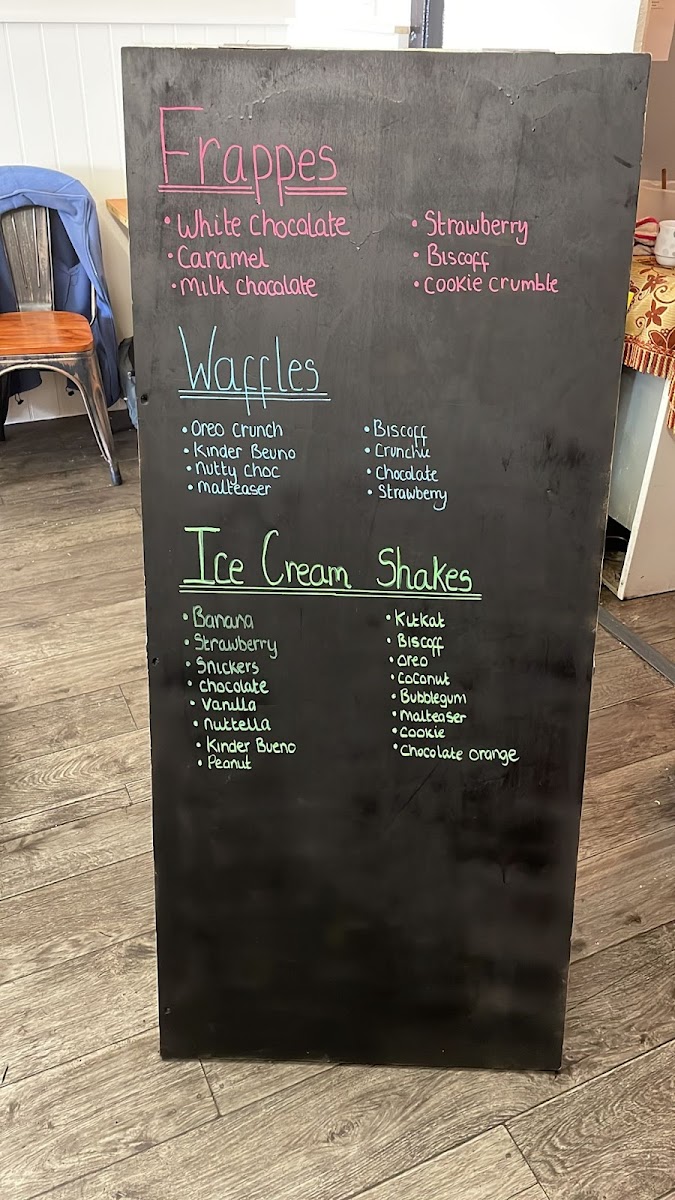 Frappes
• White chocolate
• Caramel
• Milk chocolate
• Strawberry
• Biscoff
• Cookie crumble
Waffles
• Oreo crunch
• Kinder Beuno
• nutty choc
• malteaser
• Biscoff
• Crunchie
• Chocolate
• Strawberry
Ice Cream Shakes
• Banana
• Strawberry
• Snickers
• chocolate
• Vanilla
• nuttella
• Kinder Bueno
• Peanut
• KitKat
• Biscoff
• oreo
• Coconut
• Bubblegum
• malteaser
• Cookie
• Chocolate orange